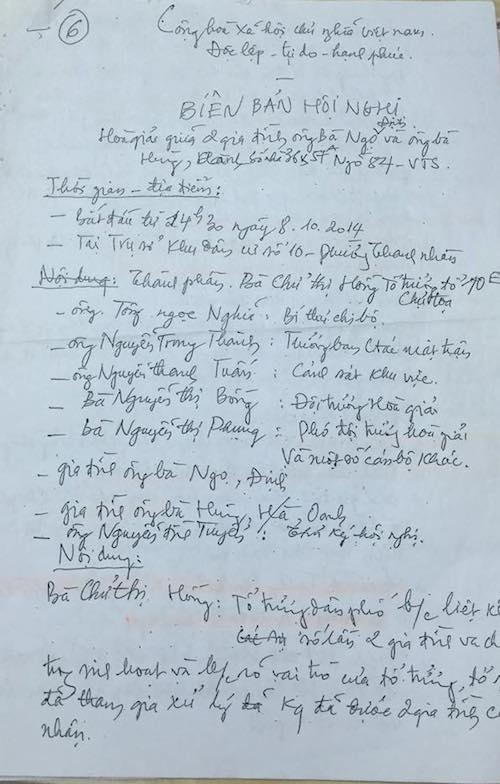 - ⑥ Cộng hoà xã hội chủ nghĩa việt nam.
Độc lập - tự do - hạnh phúc.
BIÊN BẢN HỘI NGHỊ
Hoà giải giữa 2 gia đình ông Bà Ngọ Định và ông bà
Hùng, Ngõ 84 - VTS.
Thời gian - địa điểm:
- Bắt đầu từ 14h30 ngày 8.10.2014
- Tại Trụ sở Khu dân cư số 10 - phường Thanh nhàn
Nội dung: Thành phần. Bà Chử thị Hồng Tổ trưởng tổ 70E
Chủ toạ
- ông. Tống ngọc Nghiễ: Bí thư chi bộ.
- ông Nguyễn Trọng Thành: Trưởng ban Ctác mặt trận
- ông Nguyễn thanh Tuấn: Cảnh sát khu vực.
- Bà Nguyễn thị Bống: Đội trưởng Hoà giải
- Bà Nguyễn thị Phụng: Phó đội trưởng hoà giải
Và một số cán bộ khác.
- gia đình ông bà Ngọ, Định
- gia đình ông bà Hùng, Hà, Oanh
- ông Nguyễn đình Tuyến: Thư ký hội nghị.
Nội dung:
Bà Chử thị Hồng: Tổ trưởng dân phố b/c liệt k
số lần 2 gia đình va ch
trong sinh hoạt và b/c rõ vai trò của tổ trưởng, tổ
đã tham gia xử lý Kq đã được 2 gia đình c
nhận.